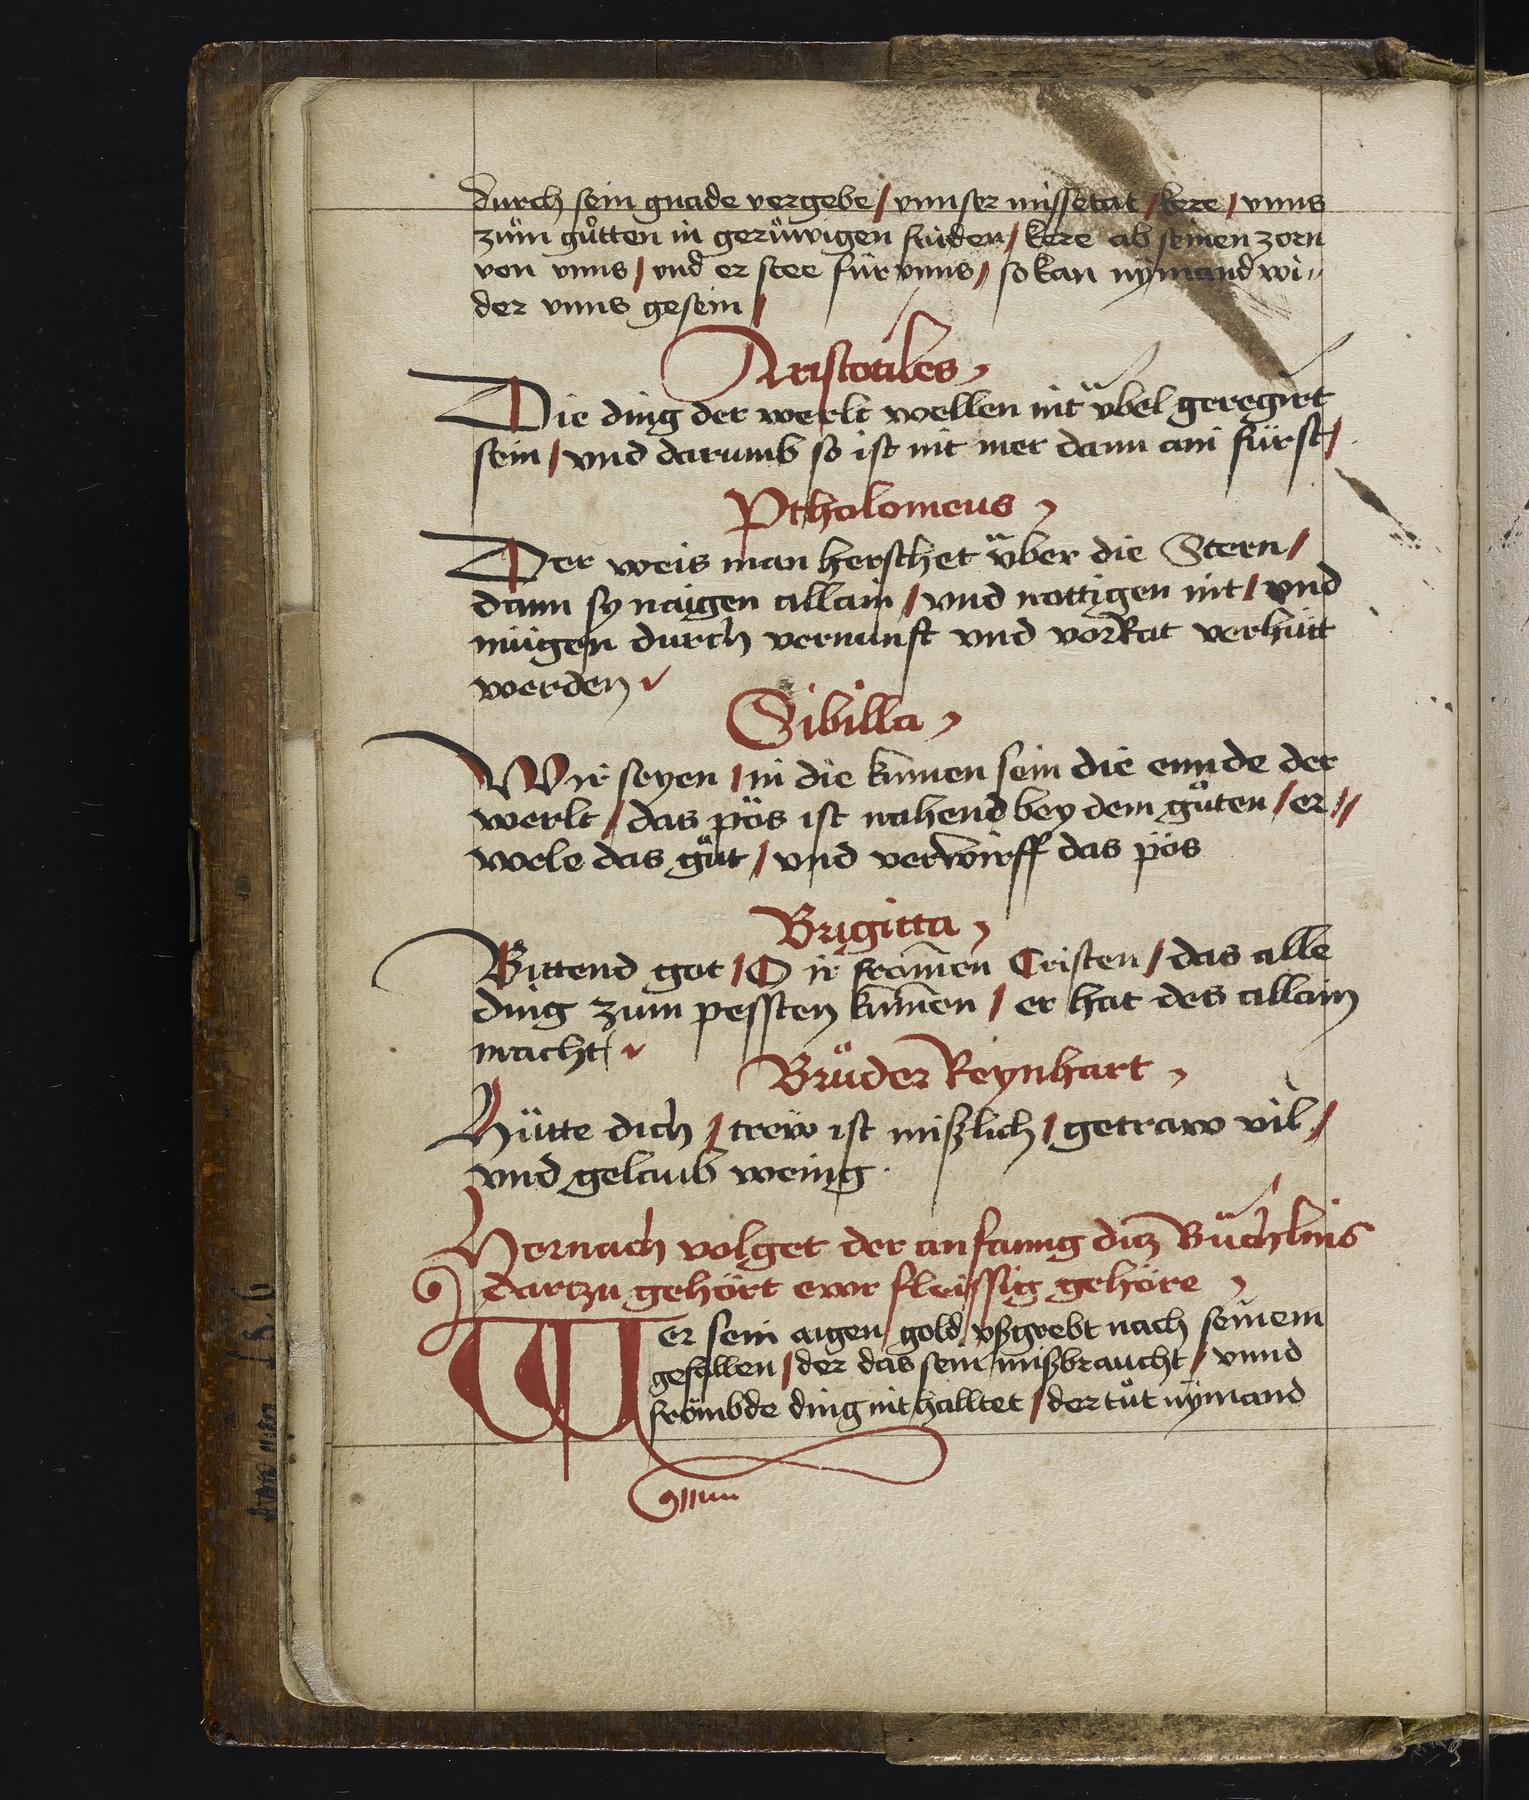 durch sein gnade vergebe / vnnser missetat / kere / vnns
zům gůtten in gerůwigen friden / kere ab seinen zorn
von vnns / vnd er stee für vnns / so kan nyͤmand wi//
der vnns gesein /
Aristotiles
Die ding der werlt wellen nit v̈bel geregirt
sein / vnd darumb so ist nit mer dann ain fürst /
Ptholomeus
Der weis man herschet v̈ber die Stern /
dann sy naigen allain / vnd nottigen nit / vnd
mügen durch vernunft vnd vorRat verhütt
werden
Sibilla
Wir seyen / in die kumen sein die ennde der
werlt / das pös ist nahend bey dem gůten / er//
wele das gůt / vnd verwirff das pös
Brigitta
Bittend got / O ir from̄en Cristen / das alle
ding zum pessten kum̄en / er hat des allain
macht
Brůder Reynhart
Hütte dich / trew ist mißlich / getraw vil /
vnd gelaub wenig
Hernach volget der anfanng ditz Büchlins
dartzu gehört ewr fleissig gehöre
Wer sein aigen gold vßgrebt nach seinem
gefallen / der das sein mißbraucht / vnnd
frömbde ding nit halltet / der tůt nÿmand